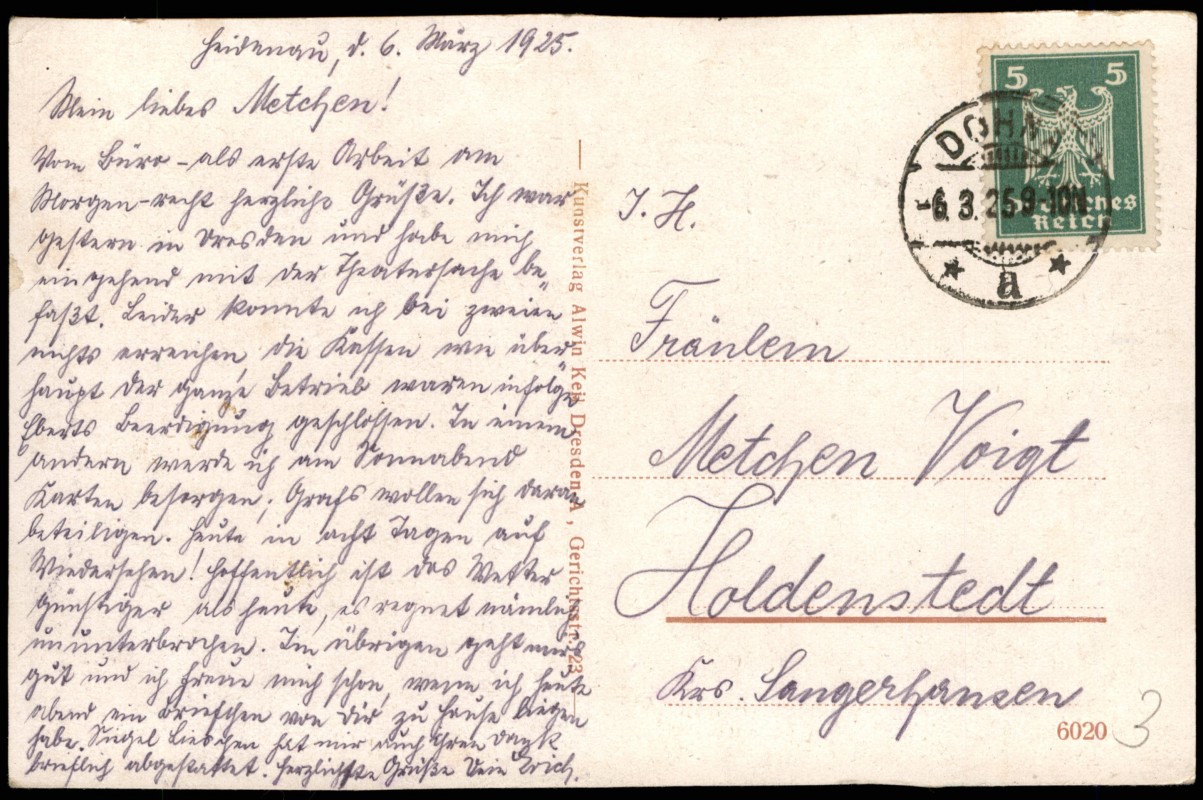 Heidenau, d. 6. März 1925.
Mein liebes Metchen!
Vom Büro - als erste Arbeit am
Morgen - recht herzliche Grüße. Ich war
gestern in Dresden und habe mich
eingehend mit der Theatersache be-
faßt. Leider konnte ich bei zweien
nichts erreichen, die Kassen wie über-
haupt der ganze Betrieb waren infolge
Eberts Beerdigung geschlossen. In einem
andern werde ich am Sonnabend
Karten besorgen; Grafs wollen sich daran
beteiligen. Heute in acht Tagen auf
Wiedersehen! Hoffentlich ist das Wetter
günstiger als heute, es regnet nämlich
ununterbrochen. Im übrigen geht mirs
gut und ich freue mich schon, wenn ich heute
abend ein Briefchen von Dir zu Hause liegen
habe. Siegel Lieschen hat mir auch Ihren Dank
brieflich abgestattet. Herzlichste Grüße Dein Erich.
Kunstverlag Alwin Keil Dresden A, Gerichtsstr. 23
5 5
Deutsches
Reich
DOHNA
-6.3.25 9-10N
a
I. H.
Fräulein
Metchen Voigt
Holdenstedt
Krs. Sangerhausen
6020
3